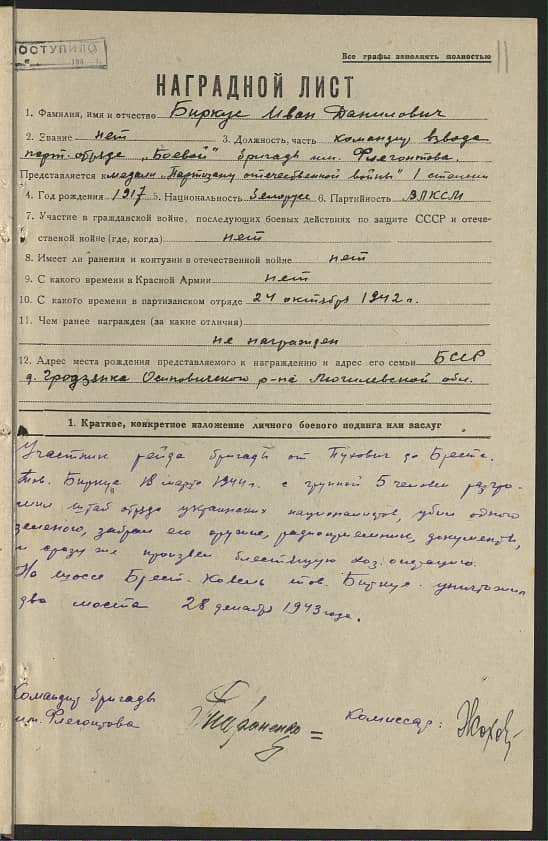 ПОСТУПИЛО
Все графы заполнять полностью
11
НАГРАДНОЙ ЛИСТ
1. Фамилия, имя и отчество Биркус Иван Данилович
2. Звание нет 3. Должность, часть командир взвода
парт. отряда „Боевой" бригады им. Флегонтова.
Представляется к медали „Партизану отечественной войны" I степени
4. Год рождения 1917 5. Национальность Белорус 6. Партийность ВЛКСМ
7. Участие в гражданской войне, последующих боевых действиях по защите СССР и отече-
ственой войне (где, когда) нет
8. Имеет ли ранения и контузии в отечественной войне нет
9. С какого времени в Красной Армии нет
10. С какого времени в партизанском отряде 24 октября 1942 г.
11. Чем ранее награжден (за какие отличия)
не награжден
12. Адрес места рождения представляемого к награждению и адрес его семьи БССР
д. Гродзянка Осиповичского р-на Могилевской обл.
1. Краткое, конкретное изложение личного боевого подвига или заслуг
Участник рейда бригады от Пухович до Бреста.
Тов. Биркус 18 марта 1944 г. с группой 5 человек разгро-
мил штаб отряда украинских националистов, убил одного
забрал его оружие, радиоприемник, документы,
и сразу же произвел блестящую хоз. операцию.
На шоссе Брест-Ковель тов. Биркус уничтожил
два моста 28 декабря 1943 года.
Командир бригады
им. Флегонтова
Комиссар: